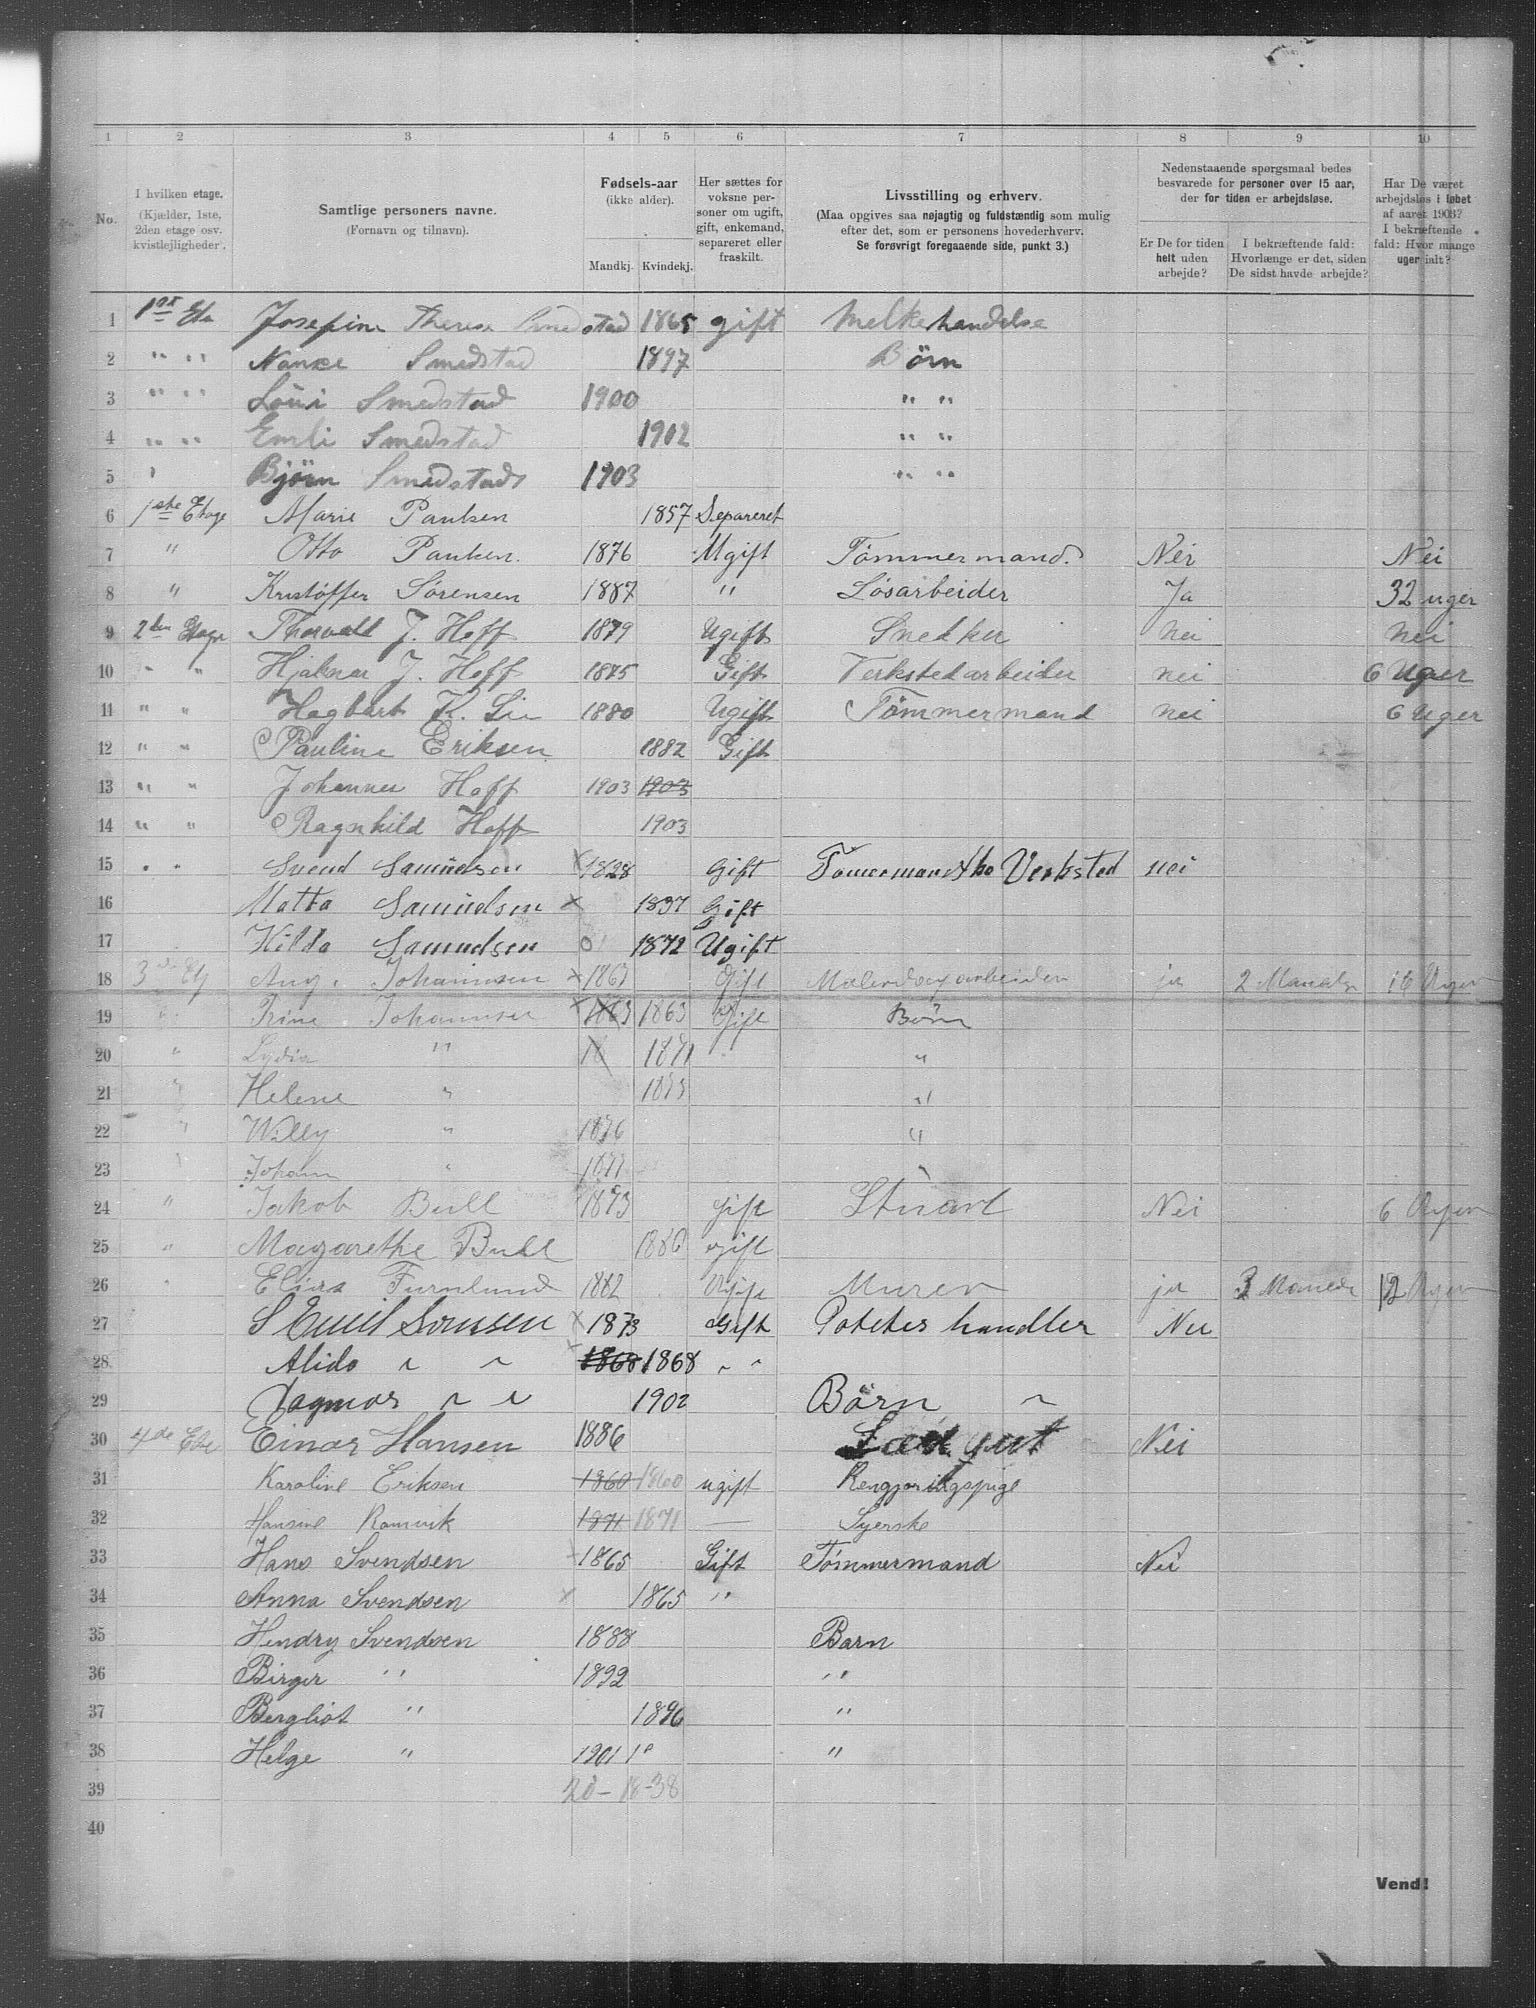 1 2 3 4 5 6 7 8 9 10
No.
I hvilken etage. (Kjælder, 1ste, 2den etage osv. kvistlejligheder.
Samtlige personers navne. (Fornavn og tilnavn).
Fødsels-aar (ikke alder). Mandkj. Kvindekj.
Her sættes for voksne personer om ugift, gift, enkemand, separeret eller fraskilt.
Livsstilling og erhverv. (Maa opgives saa nøjagtig og fuldstændig som mulig efter det, som er personens hovederhverv. Se forøvrigt foregaaende side, punkt 3.)
Nedenstaaende spørgsmaal bedes besvarede for personer over 15 aar, der for tiden er arbejdsløse.
Er De for tiden helt uden arbejde?
I bekræftende fald: Hvorlænge er det, siden De sidst havde arbejde?
Har De været arbejdsløs i løbet af aaret 1903? I bekræftende fald: Hvor mange uger ialt?
1 Josefine Therese Smedstad 1865 gift Melkehandelse
2 " " Smedstad 1897 Børn
3 " " Smedstad 1900 " "
4 " " Emli Smedstad 1902 " "
5 Bjørn Smedstad 1903 " "
6 1ste Etage Marie Paulsen 1857 Separeret
7 " Otto Paulsen. 1876 Ugift Tömmermand. Nei Nei
8 " Kristoffer Sörensen 1887 " Løsarbeider Ja 32 uger
9 2den Etage Thorvald J. Hoff 1879 Ugift Snedker nei nei
10 " " Hjalmar J. Hoff 1875 Gift Verkstedarbeider nei 6 Uger
11 " " Hagbart K. Lie 1880 Ugift Tömmermand nei 6 Uger
12 " " Pauline Eriksen 1882 Gift
13 " " Johannes Hoff 1903 1903
14 " " Ragnhild Hoff 1903
15 " " Svend Samuelsen × 1828 Gift Verksted nei
16 Samuelsen × 1837 Gift
17 Hilda Samuelsen 1872 Ugift
18 Aug. Johannsen × Gift ja 2 Uger
19 " Johannsen × 1863 1863 Gift Børn
20 " Lydia " "
21 " Helene " "
22 " Willy " "
23 " Johan "
24 " Jakob Bull 1873 Gift Stuart Nei 6 Uger
25 " Margarethe Bull 1880 gift
26 " Elias 1882 Ugift Murer ja 3 Maneder 12 Uger
27 S Emil × 1873 Gift Poteteshandler Nei
28 Alida " " × 1868 1868 " "
29 Dagmar " " 1902 Börn "
30 4de Ete Einar Hansen 1886 Nei
31 Karoline Eriksen 1860 1860 ugift Rengjøringspige
32 Hansine Ramvik 1871 1871 — Syerske
33 Hans Svendsen × 1865 Gift Tömmermand Nei
34 Anna Svendsen × 1865 "
35 Hendry Svendsen 1888 Barn
36 Birger " 1892 "
37 Bergliot " 1896 "
38 Helge " 1901 "
39 20 - 18 - 38
40
Vend!